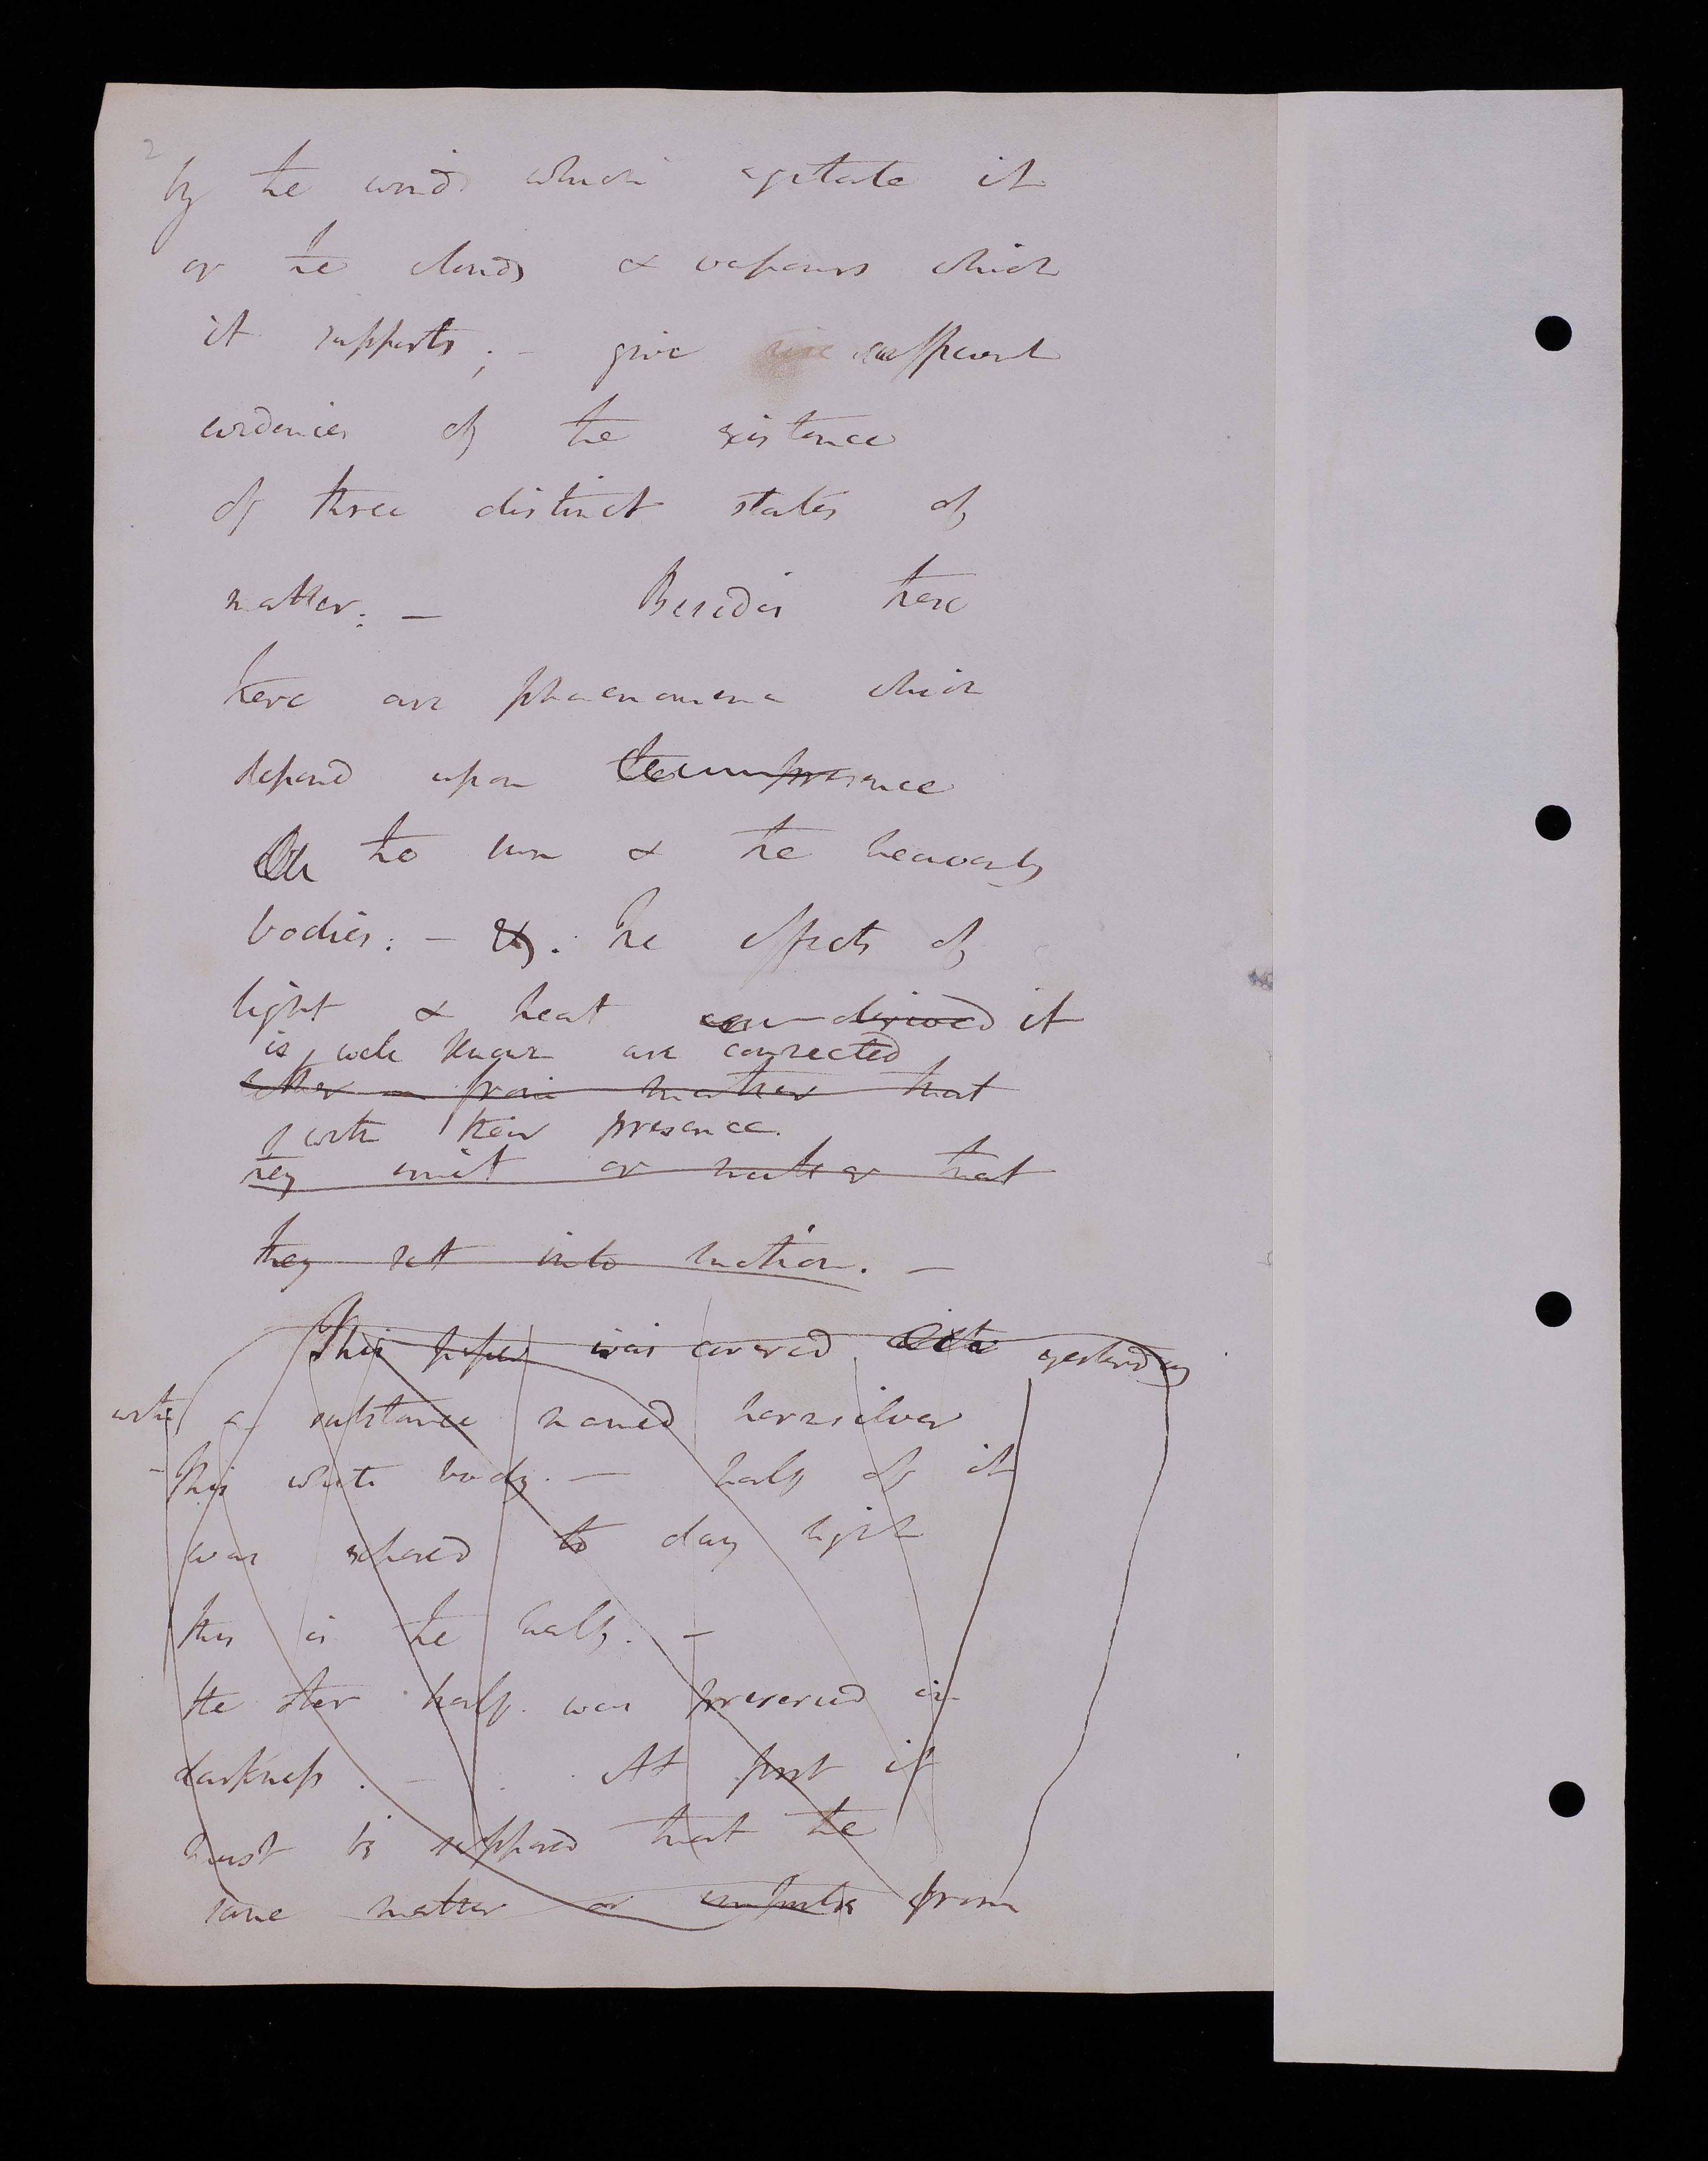 2
by the winds which agitate it
or the clouds & vapours which
it supports; - give sufficient
evidences of the existence
of three distinct states of
matter: — Besides these
there are phaenomena which
depend upon
the sun & the heavenly
bodies: - the effects of
light & heat derived it
is well known are connected
either from matter that
with their presence.
they emit or matter that
they set into motion. —
This paper was covered yesterday
with a substance named hornsilver
- this white body. — half of it
was exposed to day light
this is the half. —
the other half was preserved in
darkness. — At first it
must be supposed that the
same matter or from